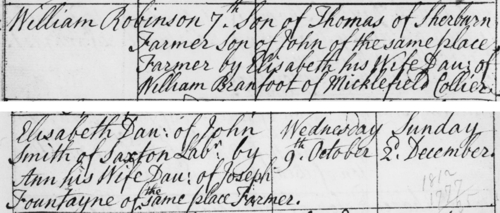 William Robinson 7th Son of Thomas of Sherburn
Farmer Son of John of the same place
Farmer by Elisabeth his Wife Dau: of
William Branfoot of Micklefield Collier.
Elisabeth Dau: of John Wednesday Sunday
Smith of Saxton Labr. by 9th. October 2. December.
Ann his Wife Dau: of Joseph
Fountayne of the same place Farmer.